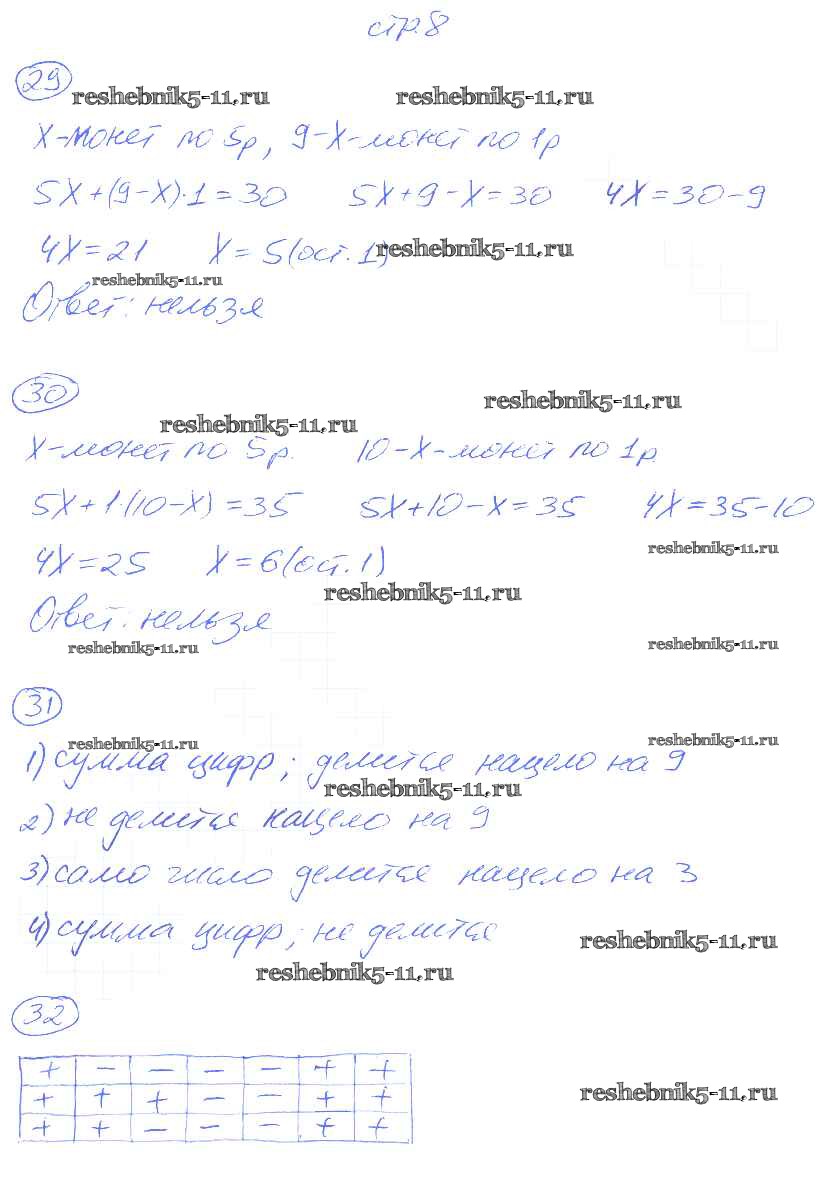 стр. 8
29
reshebnik5-11.ru reshebnik5-11.ru
X-монет по 5р, 9-X-монет по 1р
5X+(9-X)·1=30 5X+9-X=30 4X=30-9
4X=21 X=5(ост.1) reshebnik5-11.ru
reshebnik5-11.ru
Ответ: нельзя
30
reshebnik5-11.ru
reshebnik5-11.ru
X-монет по 5р. 10-X-монет по 1р
5X+1·(10-X)=35 5X+10-X=35 4X=35-10
reshebnik5-11.ru
4X=25 X=6(ост.1)
reshebnik5-11.ru
Ответ: нельзя
reshebnik5-11.ru reshebnik5-11.ru
31
reshebnik5-11.ru reshebnik5-11.ru
1) сумма цифр; делится нацело на 9
reshebnik5-11.ru
2) не делится нацело на 9
3) само число делится нацело на 3
4) сумма цифр; не делится
reshebnik5-11.ru
reshebnik5-11.ru
32
+ - - - - + +
+ + + - - + +
reshebnik5-11.ru
+ + - - - + +